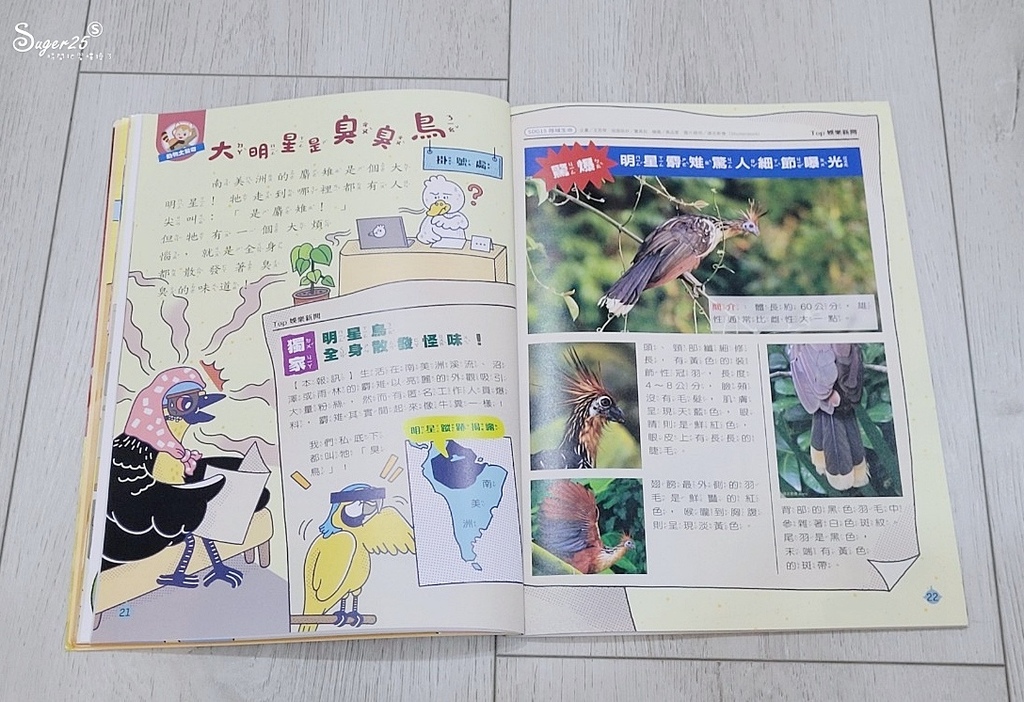 Suger25
大明星是臭臭鳥
掛號處
南美洲的麝雉是個大
明星！牠走到哪裡都有人
尖叫：「是麝雉！」
但牠有一個大煩
惱，就是全身
都散發著臭
臭的味道！
Top 娛樂新聞
獨家
明星鳥
全身散發怪味！
【本報訊】生活在南美洲溪流、沼
澤或雨林的麝雉以亮麗的外觀吸引
大量粉絲，然而有匿名工作人員爆
料，麝雉其實聞起來像牛糞一樣！
我們私底下
都叫牠「臭
鳥」！
明星蹤跡揭露
南
美
洲
21
Top 娛樂新聞
驚爆
明星麝雉驚人細節曝光
簡介：體長約60公分，雄
性通常比雌性大一點。
頭、頸部纖細修
長，有黃色的裝
飾性冠羽，長度
4～8公分，臉頰
沒有毛髮，肌膚
呈現天藍色，眼
睛則是鮮紅色，
眼皮上有長長的
睫毛。
翅膀最外側的羽
毛是鮮豔的紅
色，喉嚨到胸腹
則呈現淡黃色。
背部的黑色羽毛中
參雜著白色斑紋，
尾羽是黑色，
末端有黃色
的斑帶。
22